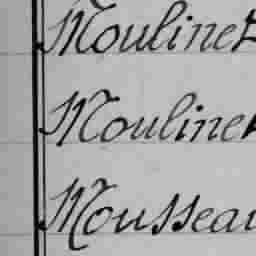 Moulinet
Moulinet
Mousseau